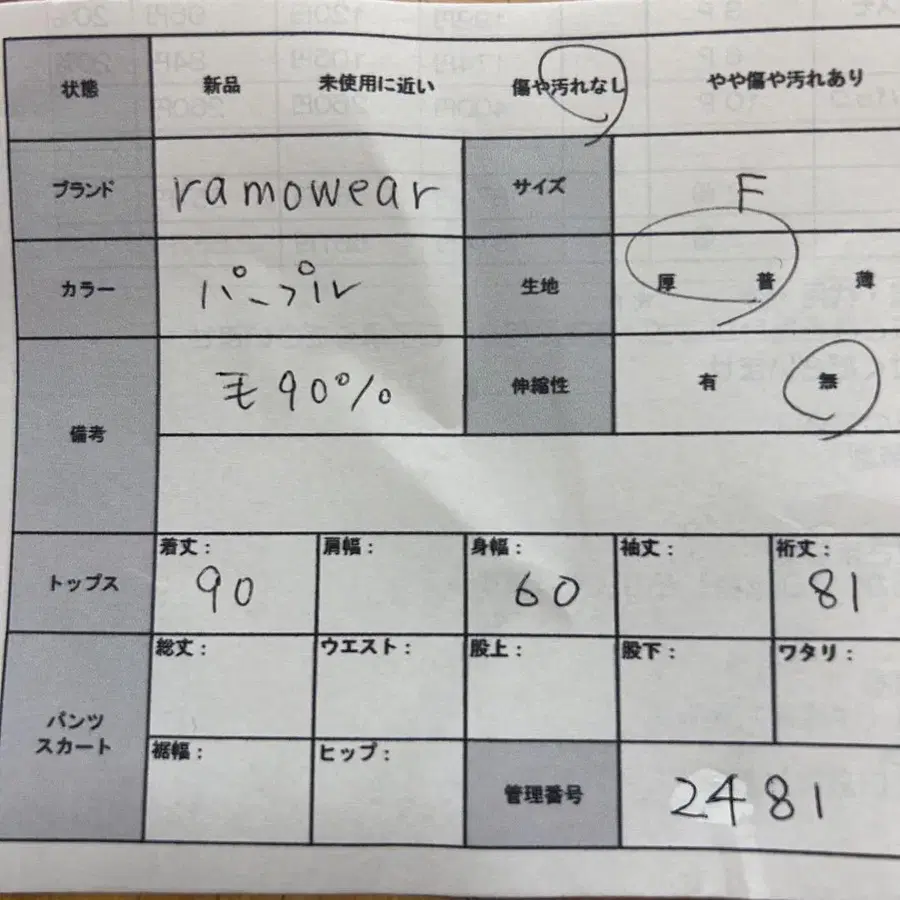 状態 新品 未使用に近い 傷や汚れなし やや傷や汚れあり
ブランド ramowear サイズ F
カラー パープル 生地 厚 普 薄
備考 毛90% 伸縮性 有 無
トップス 着丈: 90 肩幅: 身幅: 60 袖丈: 裄丈: 81
パンツ スカート 総丈: ウエスト: 股上: 股下: ワタリ:
裾幅: ヒップ: 管理番号 2481